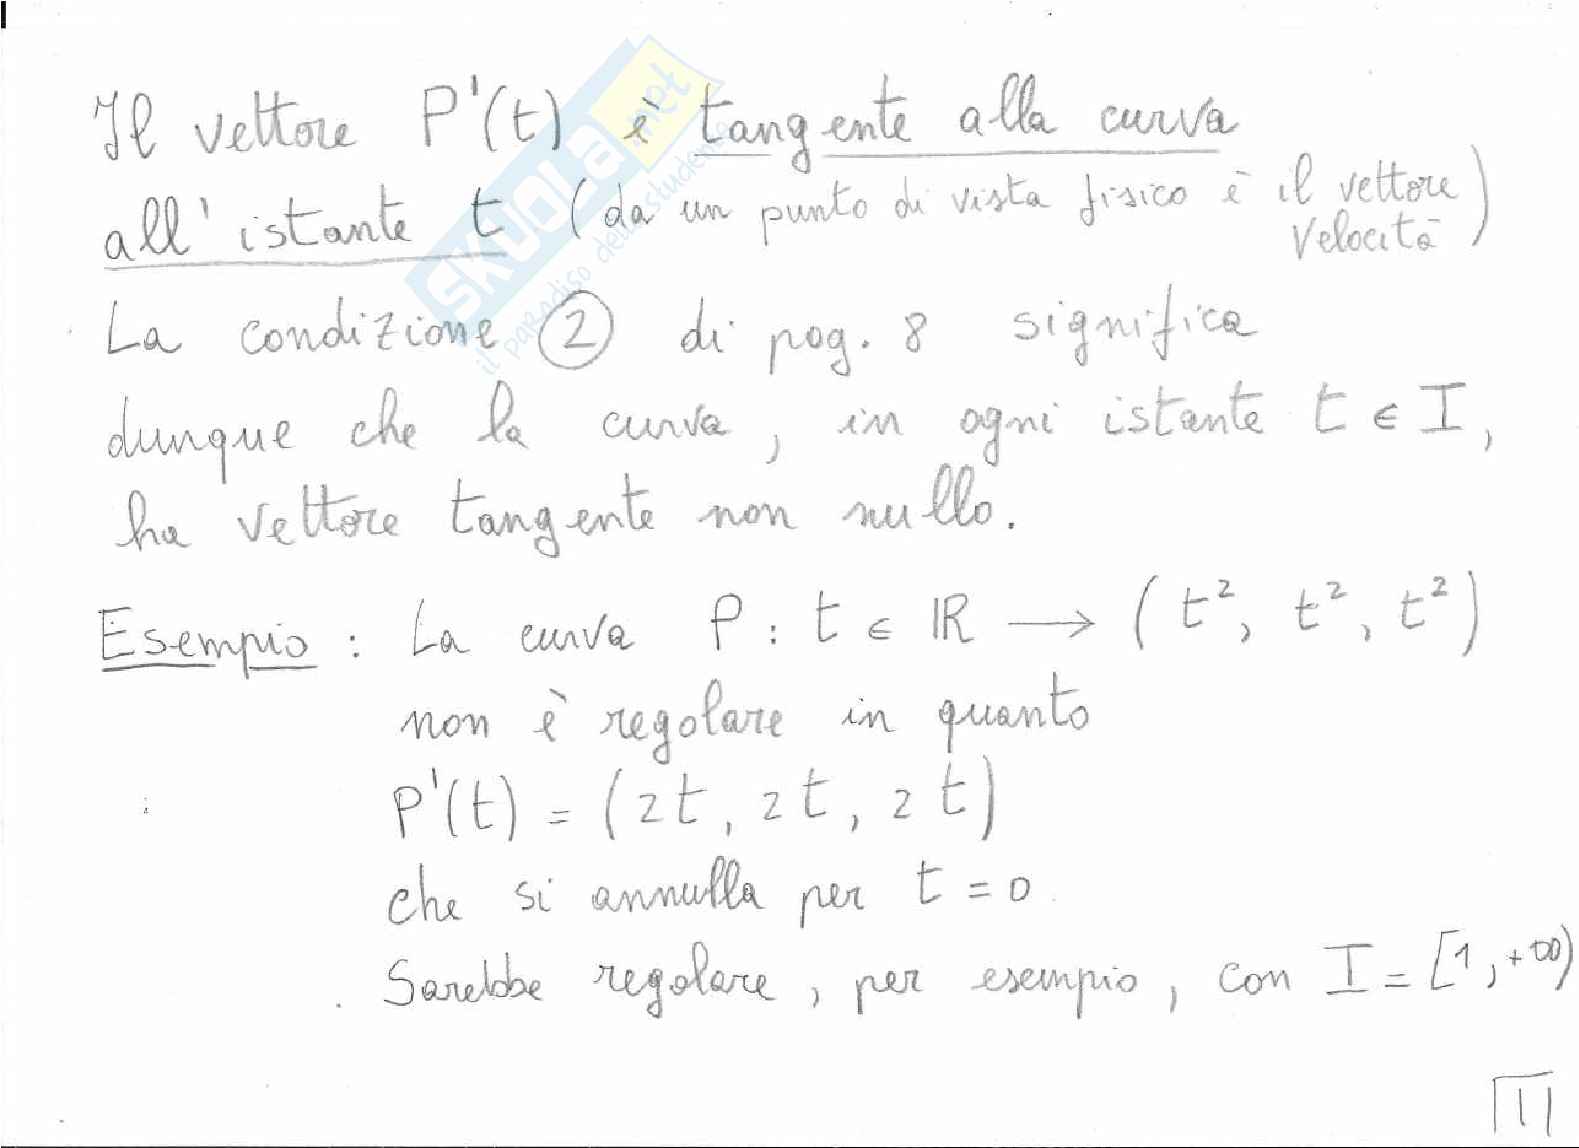 Il vettore P'(t) è tangente alla curva
all'istante t (da un punto di vista fisico è il vettore
velocità)
La condizione ② di pag. 8 significa
dunque che la curva, in ogni istante t ∈ I,
ha vettore tangente non nullo.
Esempio: La curva P: t ∈ ℝ → (t², t², t²)
non è regolare in quanto
P'(t) = (2t, 2t, 2t)
che si annulla per t = 0
Sarebbe regolare, per esempio, con I = [1, +∞)
11
SKUOLA.net
il paradiso dello studente